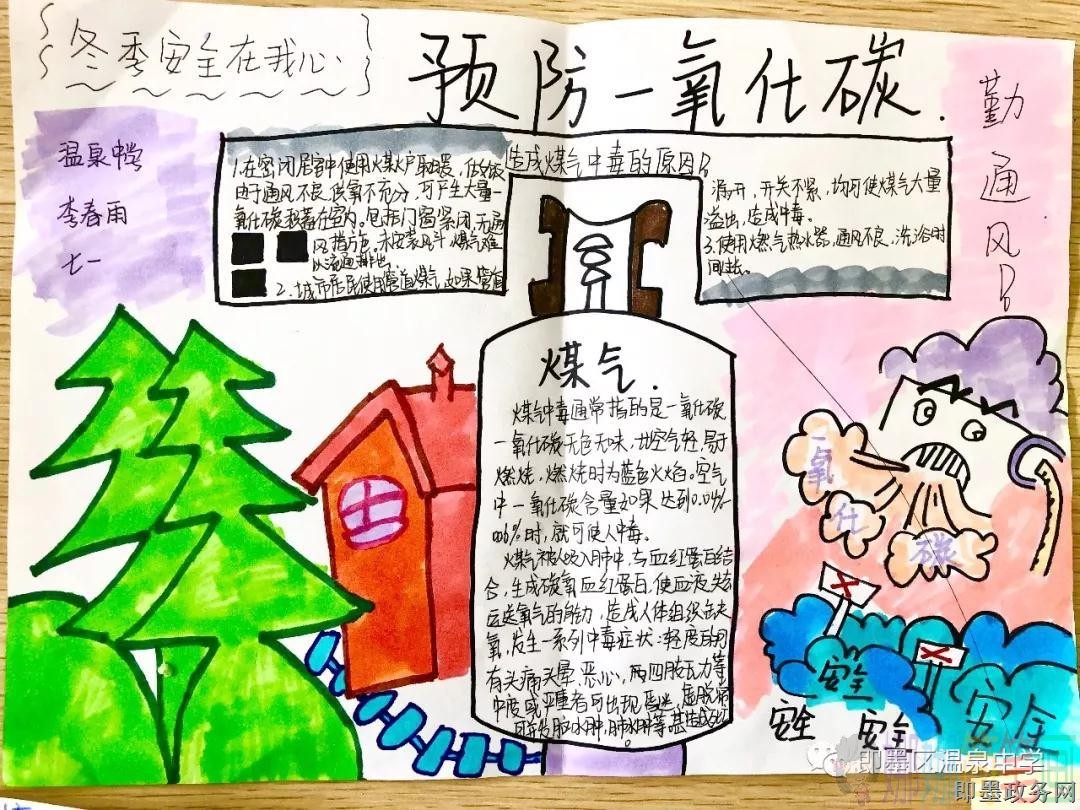 冬季安全在我心
预防一氧化碳
勤通风
温泉中学
李春雨
七一
造成煤气中毒的原因
1.在密闭居室中使用煤炉取暖,做饭
由于通风不良,供氧不充分,可产生大量一
氧化碳积蓄在室内。包括门窗紧闭,无通
风措施,未安装风斗 煤气难
以流通排出
2.城市居民使用管道煤气,如果管道
开关不紧,均可使煤气大量
溢出,造成中毒。
3.使用燃气热水器,通风不良,洗浴时
间长
煤气
煤气中毒通常指的是一氧化碳
一氧化碳无色无味,比空气轻,易于
燃烧,燃烧时为蓝色火焰。空气
中一氧化碳含量如果达到0.04%-
0.06%时,就可使人中毒。
煤气被人吸入肺中,与血红蛋白结
合,生成碳氧血红蛋白,使血液失去
运送氧气的能力,造成人体组织缺
氧,发生一系列中毒症状:轻度的可
有头痛头晕,恶心,两四肢无力等
中度或严重者可出现昏迷,
脑水肿,肺水肿等
一氧
化
碳
安全
安全
安全
安全
即墨区温泉中学
即墨政务网